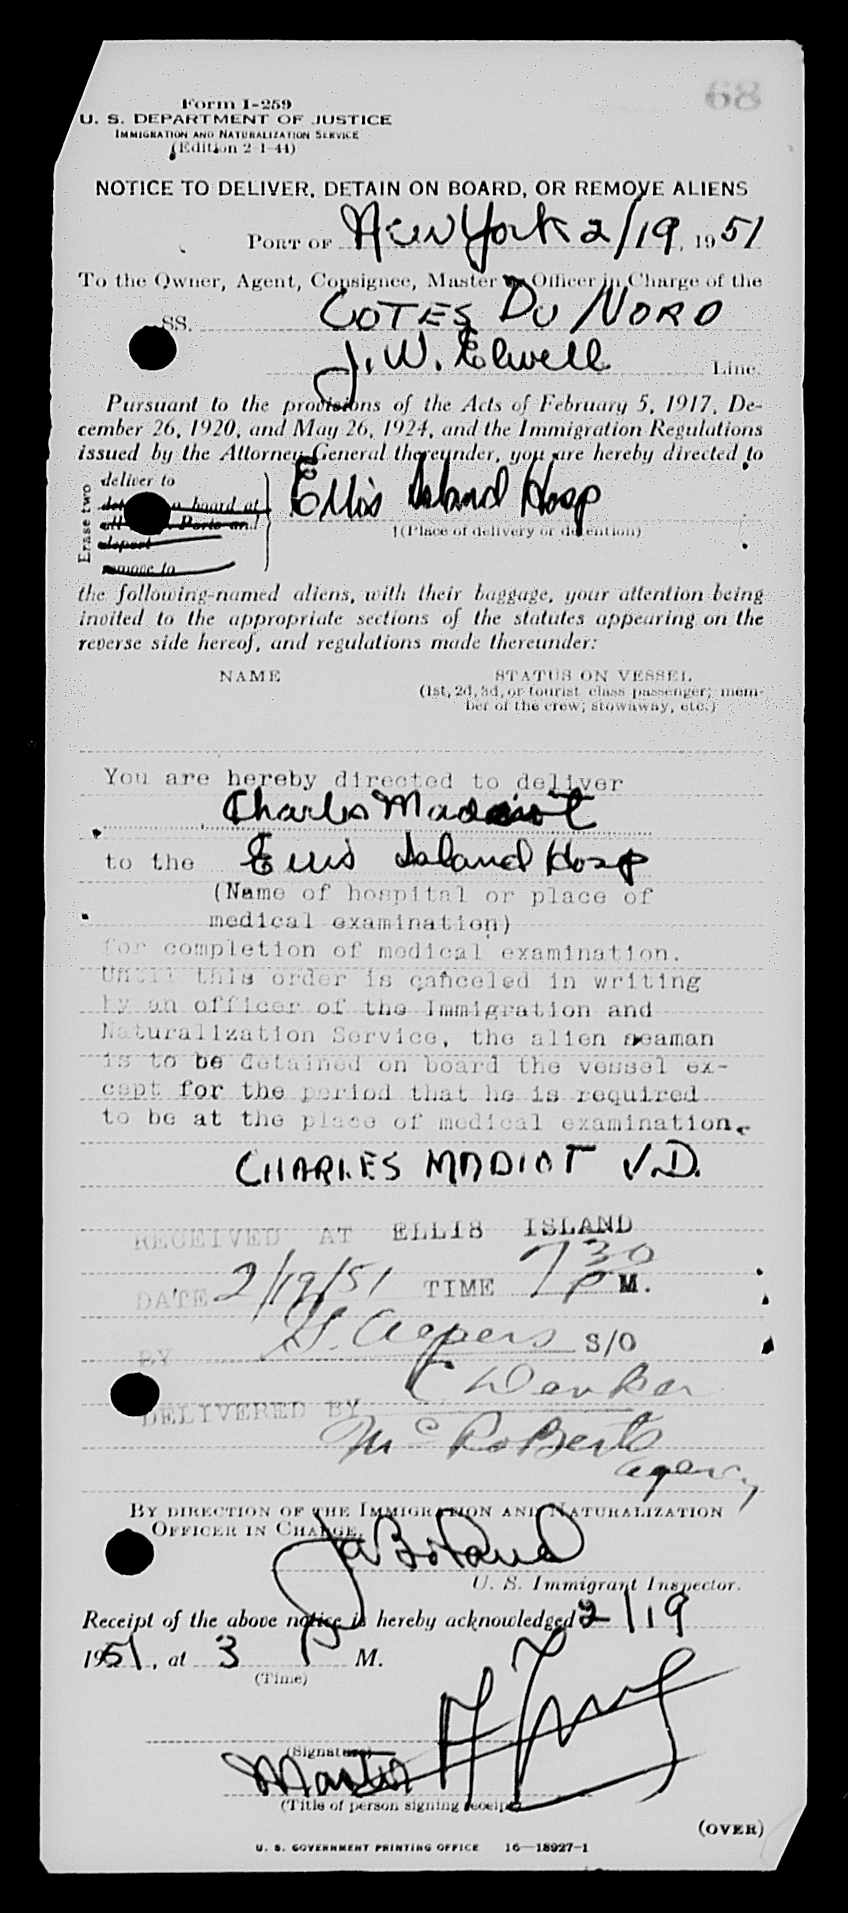 68
Form I-259
U. S. DEPARTMENT OF JUSTICE
IMMIGRATION AND NATURALIZATION SERVICE
(Edition 2-1-44)
NOTICE TO DELIVER, DETAIN ON BOARD, OR REMOVE ALIENS
PORT OF New York 2/19, 1951
To the Owner, Agent, Consignee, Master or Officer in Charge of the
SS. COTES DU NORD
J. W. Elwell Line.
Pursuant to the provisions of the Acts of February 5, 1917, De-
cember 26, 1920, and May 26, 1924, and the Immigration Regulations
issued by the Attorney General thereunder, you are hereby directed to
Erase two
deliver to
board at
Ports and
deport
remove to
Ellis Island Hosp
†(Place of delivery or detention)
the following-named aliens, with their baggage, your attention being
invited to the appropriate sections of the statutes appearing on the
reverse side hereof, and regulations made thereunder:
NAME STATUS ON VESSEL
(1st, 2d, 3d, or tourist class passenger; mem-
ber of the crew; stowaway, etc.)
You are hereby directed to deliver
Charles Madiot
to the Ellis Island Hosp
(Name of hospital or place of
medical examination)
for completion of medical examination.
Until this order is canceled in writing
by an officer of the Immigration and
Naturalization Service, the alien seaman
is to be detained on board the vessel ex-
cept for the period that he is required
to be at the place of medical examination.
CHARLES MADIOT V.D.
RECEIVED AT ELLIS ISLAND
DATE 2/19/51 TIME 7 30 P M.
BY S/O
DELIVERED BY
McRoberts
agency
BY DIRECTION OF THE IMMIGRATION AND NATURALIZATION
OFFICER IN CHARGE,
U. S. Immigrant Inspector.
Receipt of the above notice is hereby acknowledged 2/19
1951, at 3 P M.
(Time)
(Signature)
Master
(Title of person signing receipt)
(OVER)
U. S. GOVERNMENT PRINTING OFFICE 16—18927-1